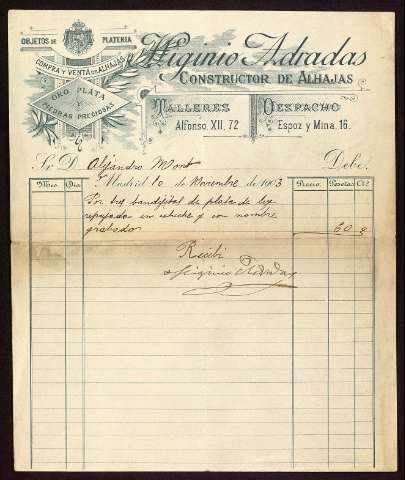 OBJETOS DE PLATERIA
COMPRA Y VENTA DE ALHAJAS
ORO, PLATA
Y
PIEDRAS PRECIOSAS
Higinio Adradas
CONSTRUCTOR DE ALHAJAS
TALLERES
Alfonso, XII, 72
DESPACHO
Espoz y Mina, 16.
Sr. D. Alejandro Mont Debe:
Madrid 10 de Noviembre de 1903
Mes. Dia. Precio. Pesetas Cts
Por tres bandejitas de plata de ley
repujada en y con nombre
grabados 60
Recibí
Higinio Adradas